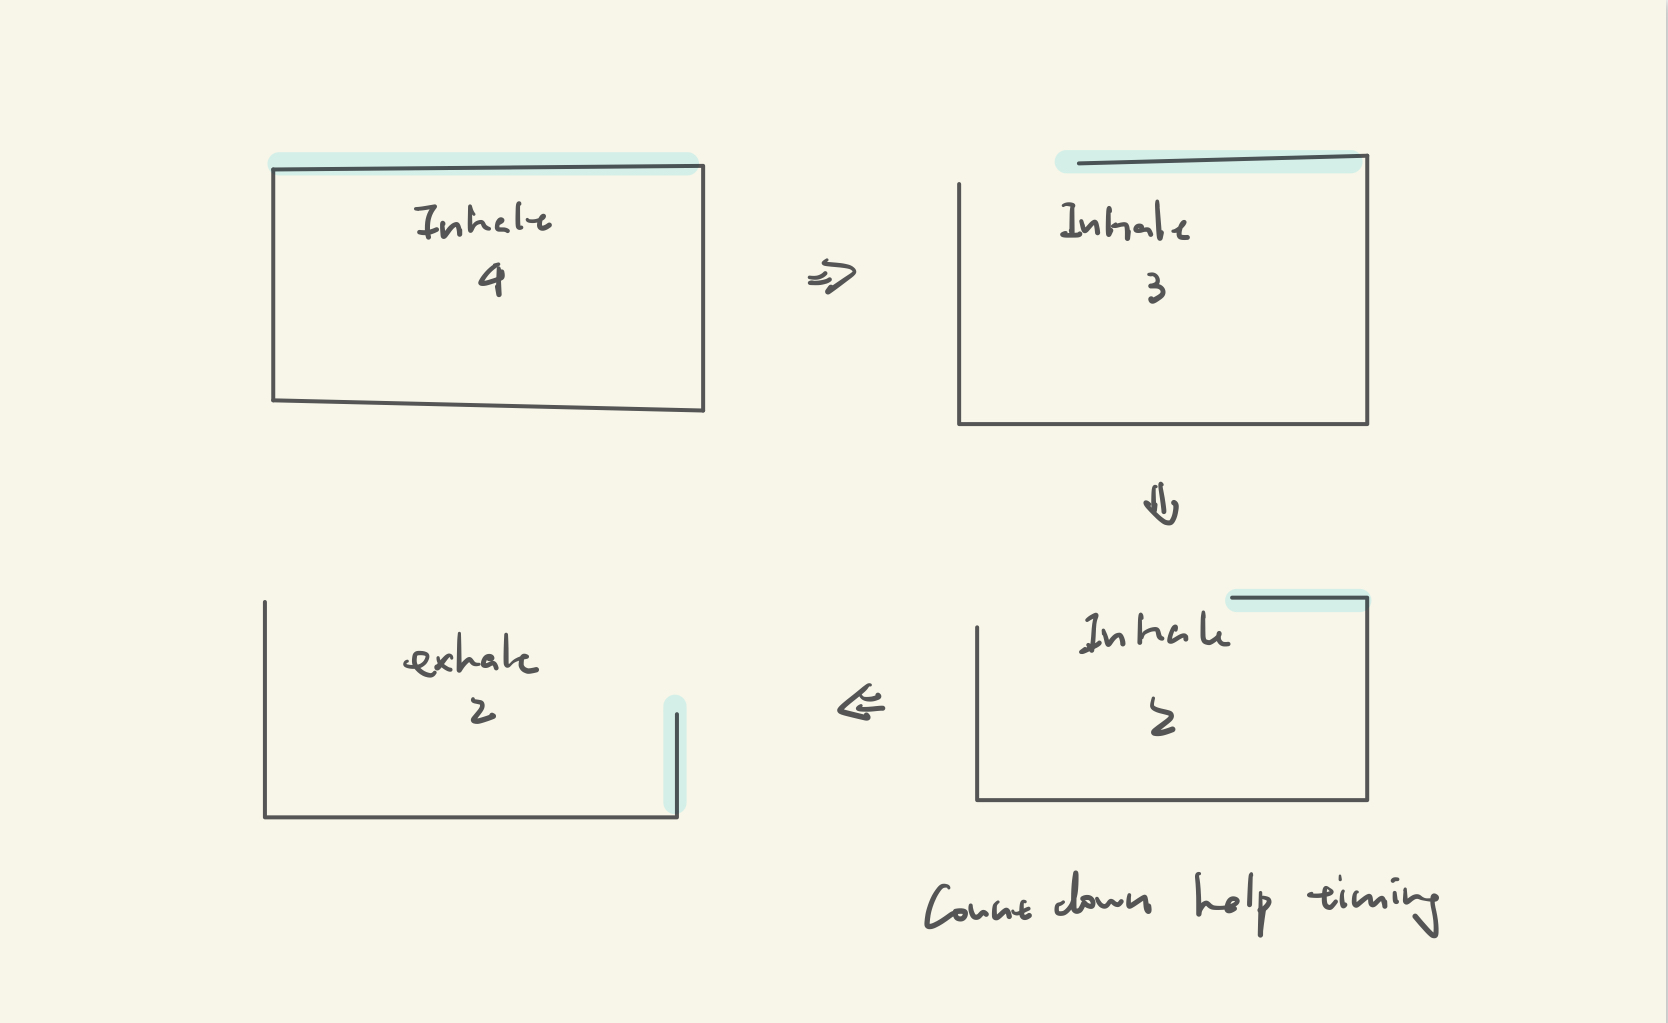 Inhale
4
Inhale
3
Inhale
2
exhale
2
Count down help timing